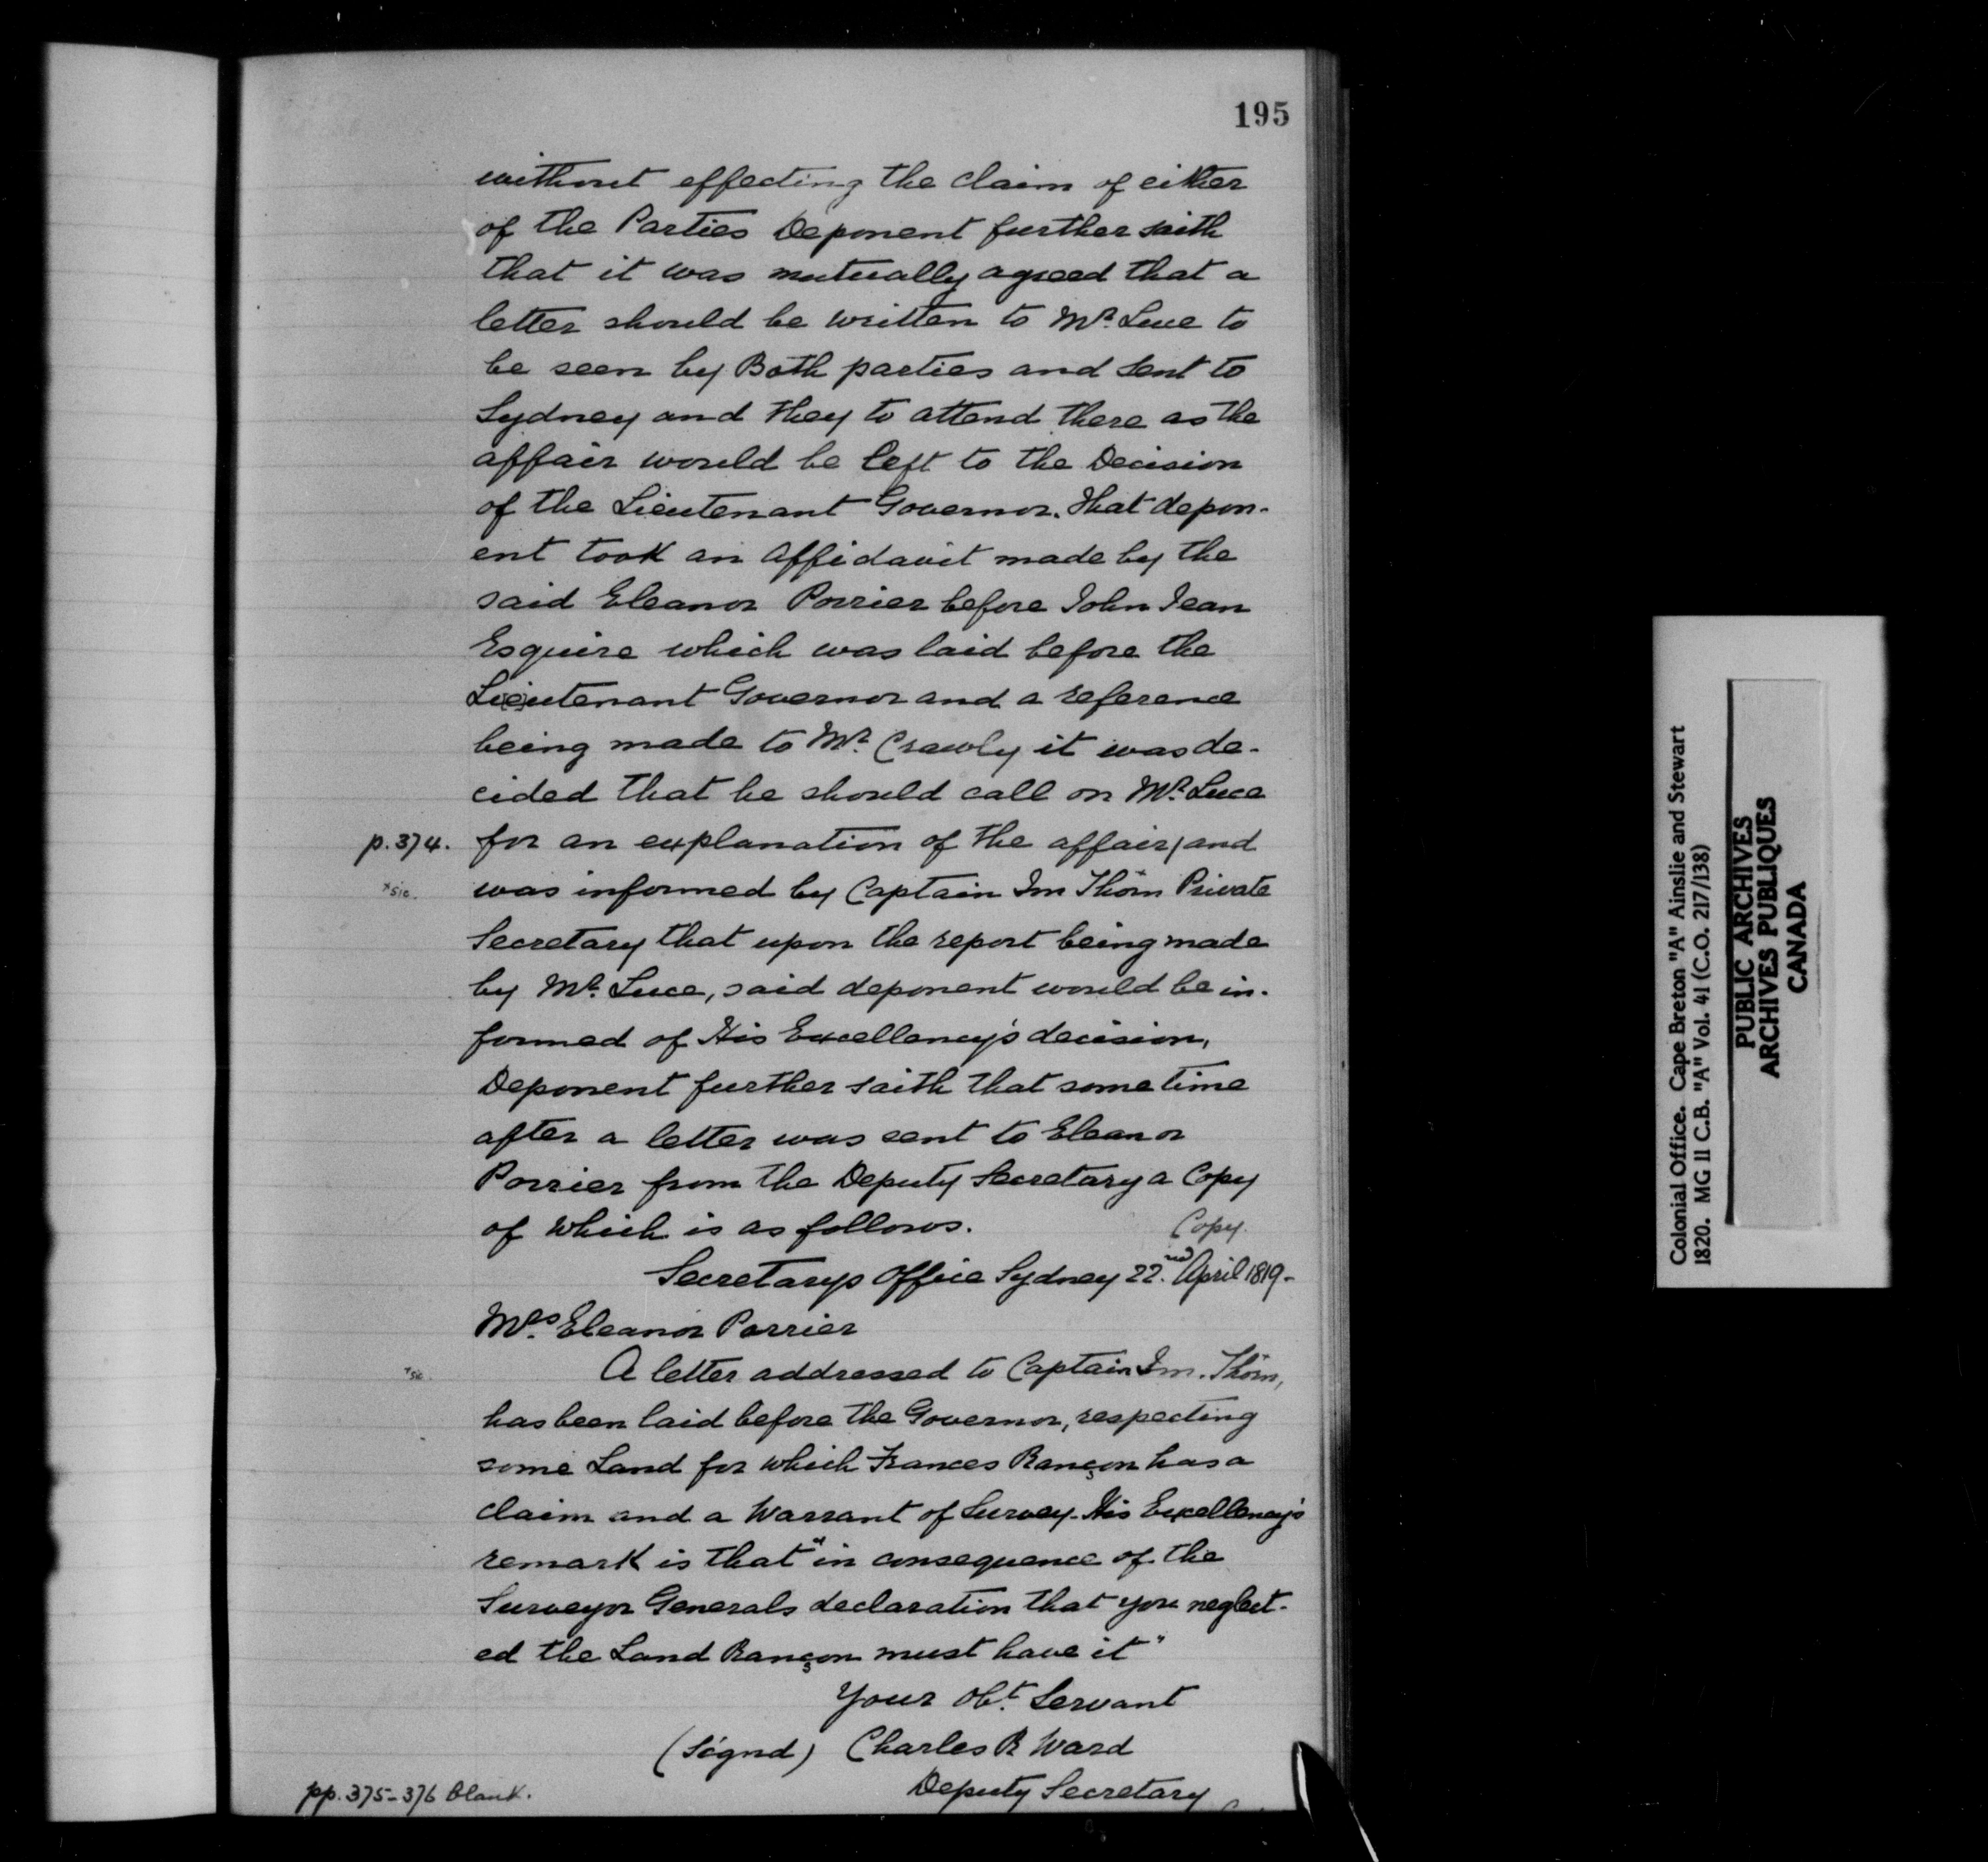 195
without effecting the claim of either
of the Parties Deponent further saith
that it was mutually agreed that a
letter should be written to Mr. Luce to
be seen by Both parties and sent to
Sydney and they to attend there as the
affair would be left to the Decision
of the Lieutenant Governor. That depon-
ent took an Affidavit made by the
said Eleanor Porrier before John Jean
Esquire which was laid before the
Lieutenant Governor and a reference
being made to Mr. Crawly it was de-
cided that he should call on Mr. Luce
p. 374. for an explanation of the affair/and
x sic. was informed by Captain Im Thörn Private
Secretary that upon the report being made
by Mr. Luce, said deponent would be in-
formed of His Excellency's decision,
Deponent further saith that some time
after a letter was sent to Eleanor
Porrier from the Deputy Secretary a Copy
of which is as follows. Copy.
Secretarys Office Sydney 22.nd April 1819-
Mrs. Eleanor Porrier
x sic A letter addressed to Captain Im. Thörn,
has been laid before the Governor, respecting
some Land for which Frances Rançon has a
claim and a Warrant of Survey. His Excellency's
remark is that "in consequence of the
Surveyor Generals declaration that you neglect-
ed the Land Rançon must have it"
Your obt. Servant
(Signd) Charles R Ward
Deputy Secretary
pp. 375-376 blank.
Colonial Office. Cape Breton "A" Ainslie and Stewart
1820. MG 11 C.B. "A" Vol. 41 (C.O. 217/138)
PUBLIC ARCHIVES
ARCHIVES PUBLIQUES
CANADA